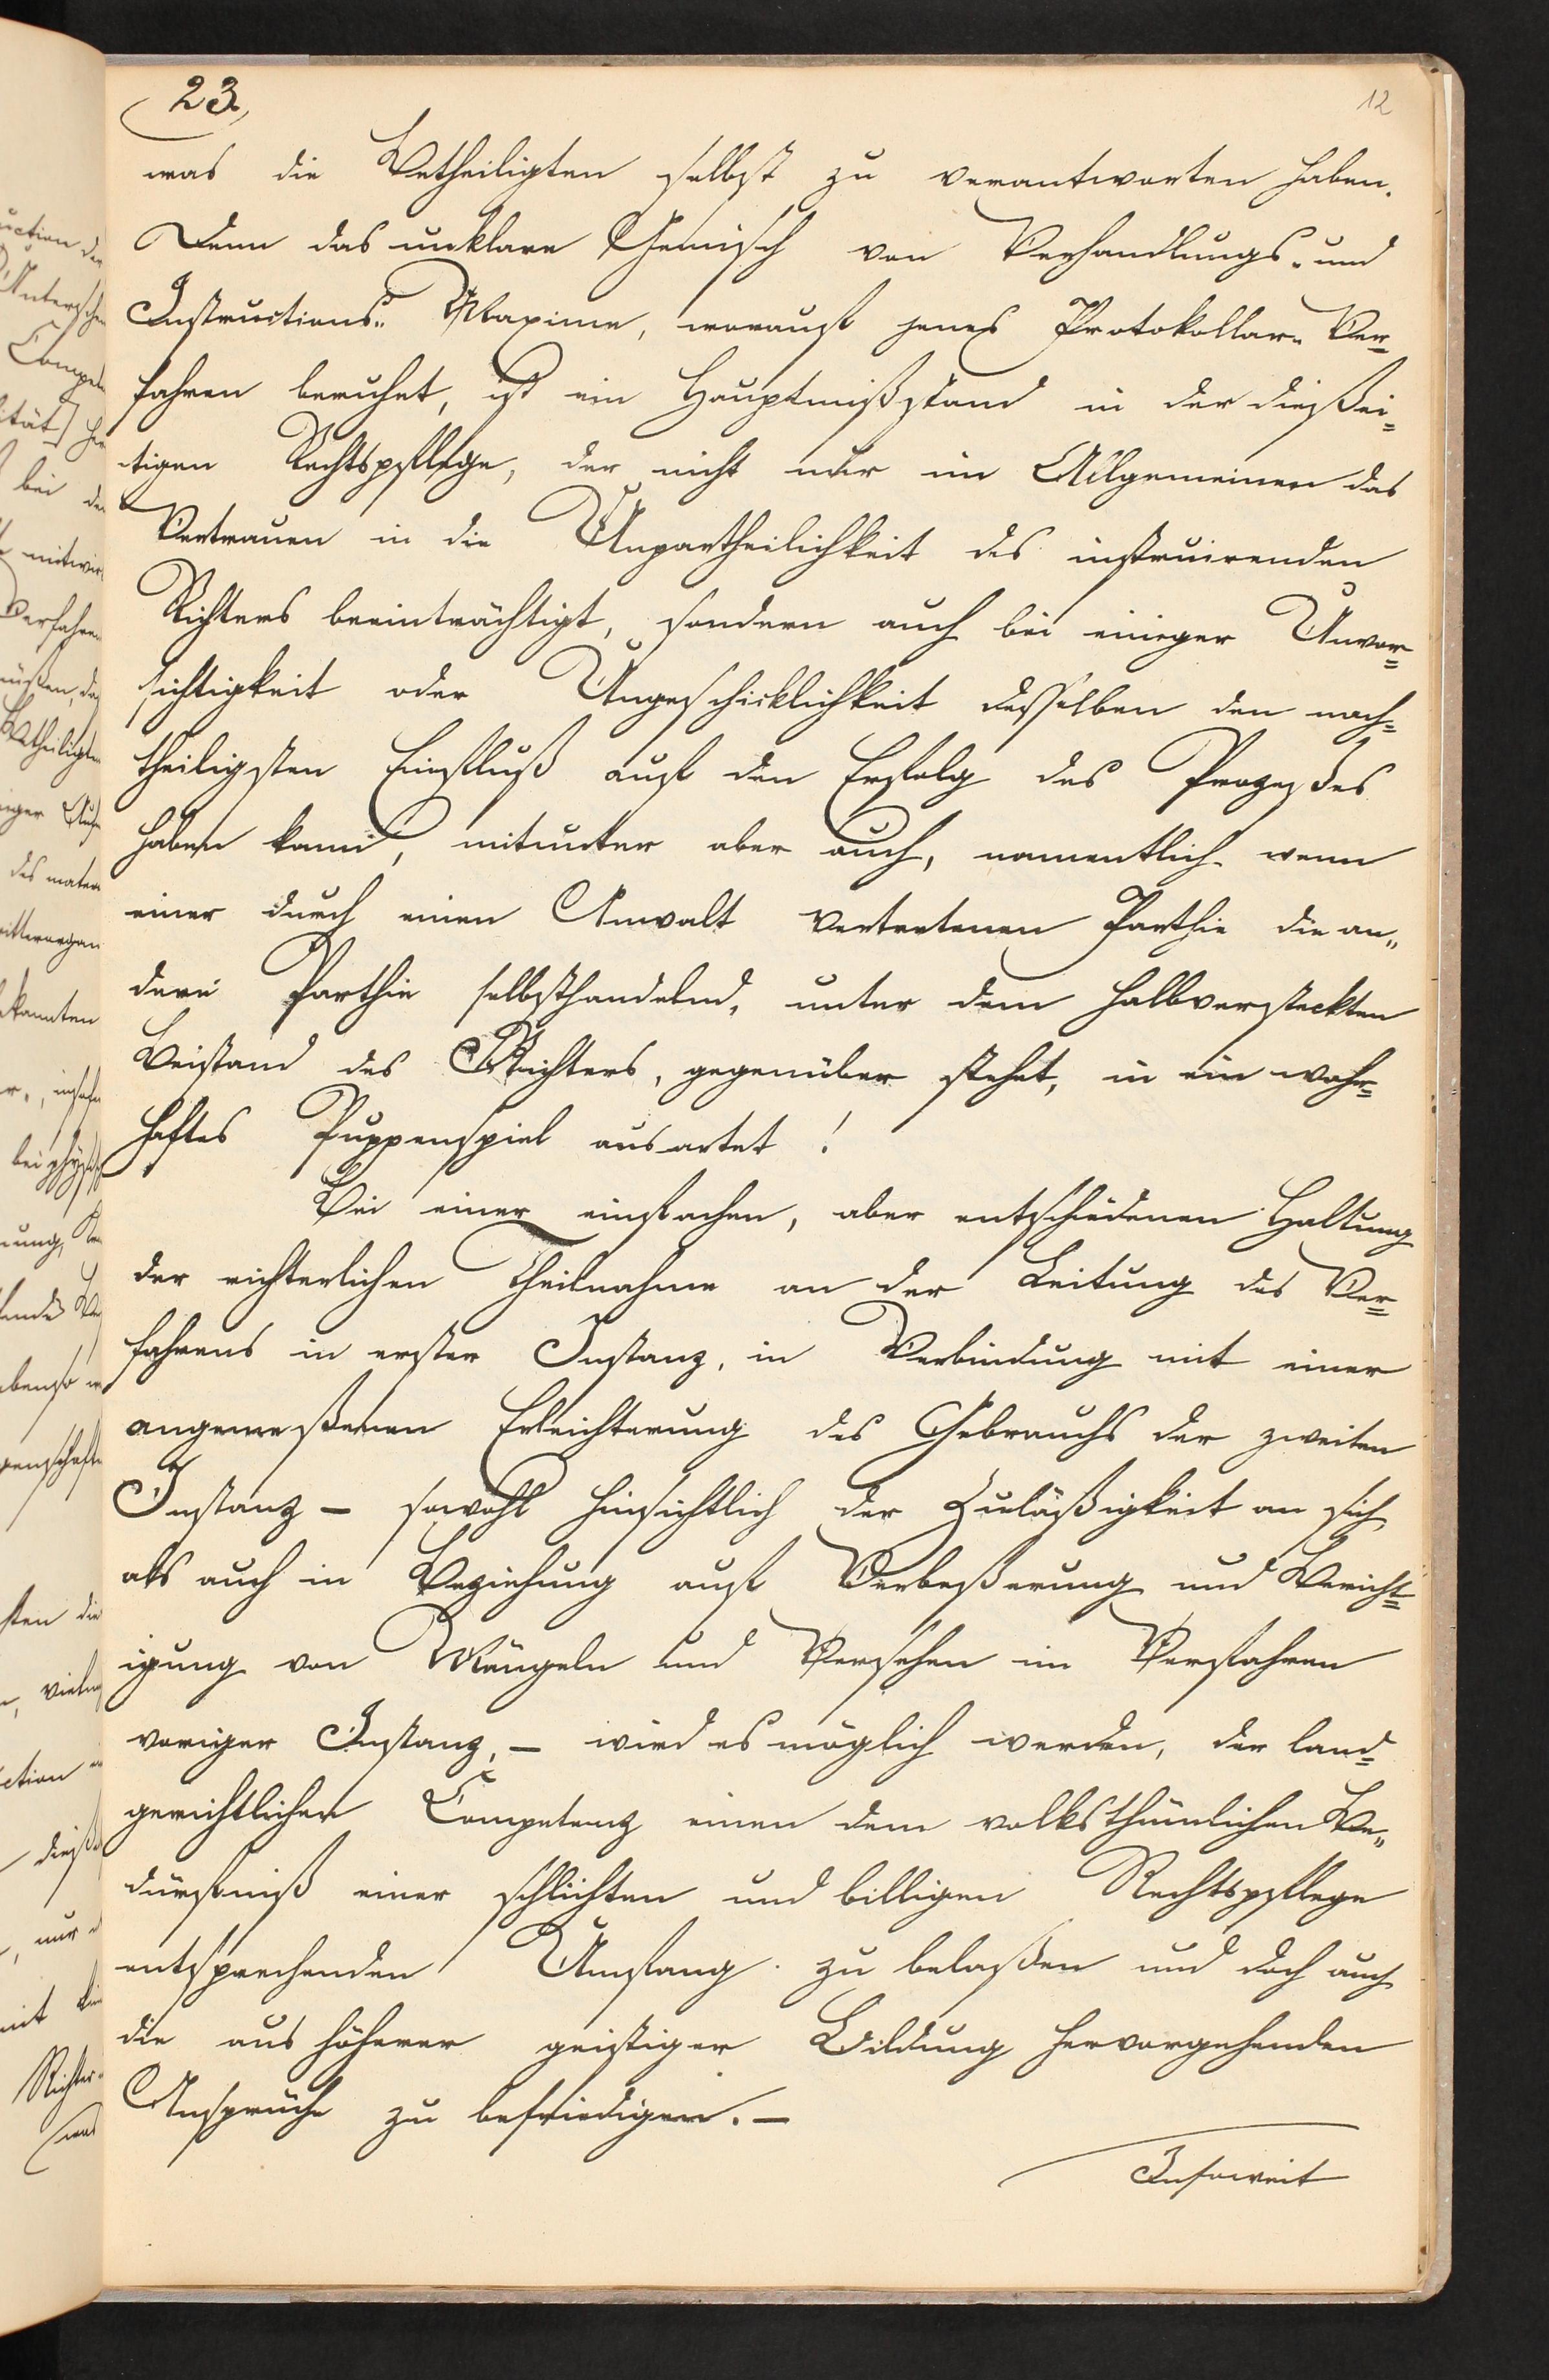 23.,
12
was die Betheiligten selbst zu verantworten haben.
Denn das unklare Gemisch von Verhandlungs- und
Instructions- Maxime, worauf jenes Protokollar- Ver=
fahren beruhet, ist ein Hauptmißstand in der dießei=
tigen Rechtspflege, der nicht nur im Allgemeinen das
Vertrauen in die Unpartheilichkeit des instruirenden
Richters beeinträchtigt, sondern auch bei einiger Unvor=
sichtigkeit oder Ungeschicklichkeit desselben den nach=
theiligsten Einfluß auf den Erfolg des Prozeßes
haben kann, mitunter aber auch, namentlich wenn
einer durch einen Anwalt vertretenen Parthie die an„
dere Parthie selbsthandelnd, unter dem halbversteckten
Beistand des Richters, gegenüber stehet, in ein wahr=
haftes Puppenspiel ausartet!
Bei einer einfachen, aber entschiedenen Haltung
der richterlichen Theilnahme an der Leitung des Ver=
fahrens in erster Instanz, in Verbindung mit einer
angemeßenen Erleichterung des Gebrauchs der zweiten
Instanz – sowohl hinsichtlich der Zuläßigkeit an sich
als auch in Beziehung auf Verbeßerung und Bericht=
igung von Mängeln und Versehen im Verfahren
voriger Instanz, – wird es möglich werden, der land=
gerichtlichen Competenz einen dem volksthümlichen Be„
dürfniß einer schlichten und billigen Rechtspflege
entsprechenden Umfang zu belaßen und doch auch
die aus höherer geistiger Bildung hervorgehenden
Ansprüche zu befriedigen. –
Insoweit